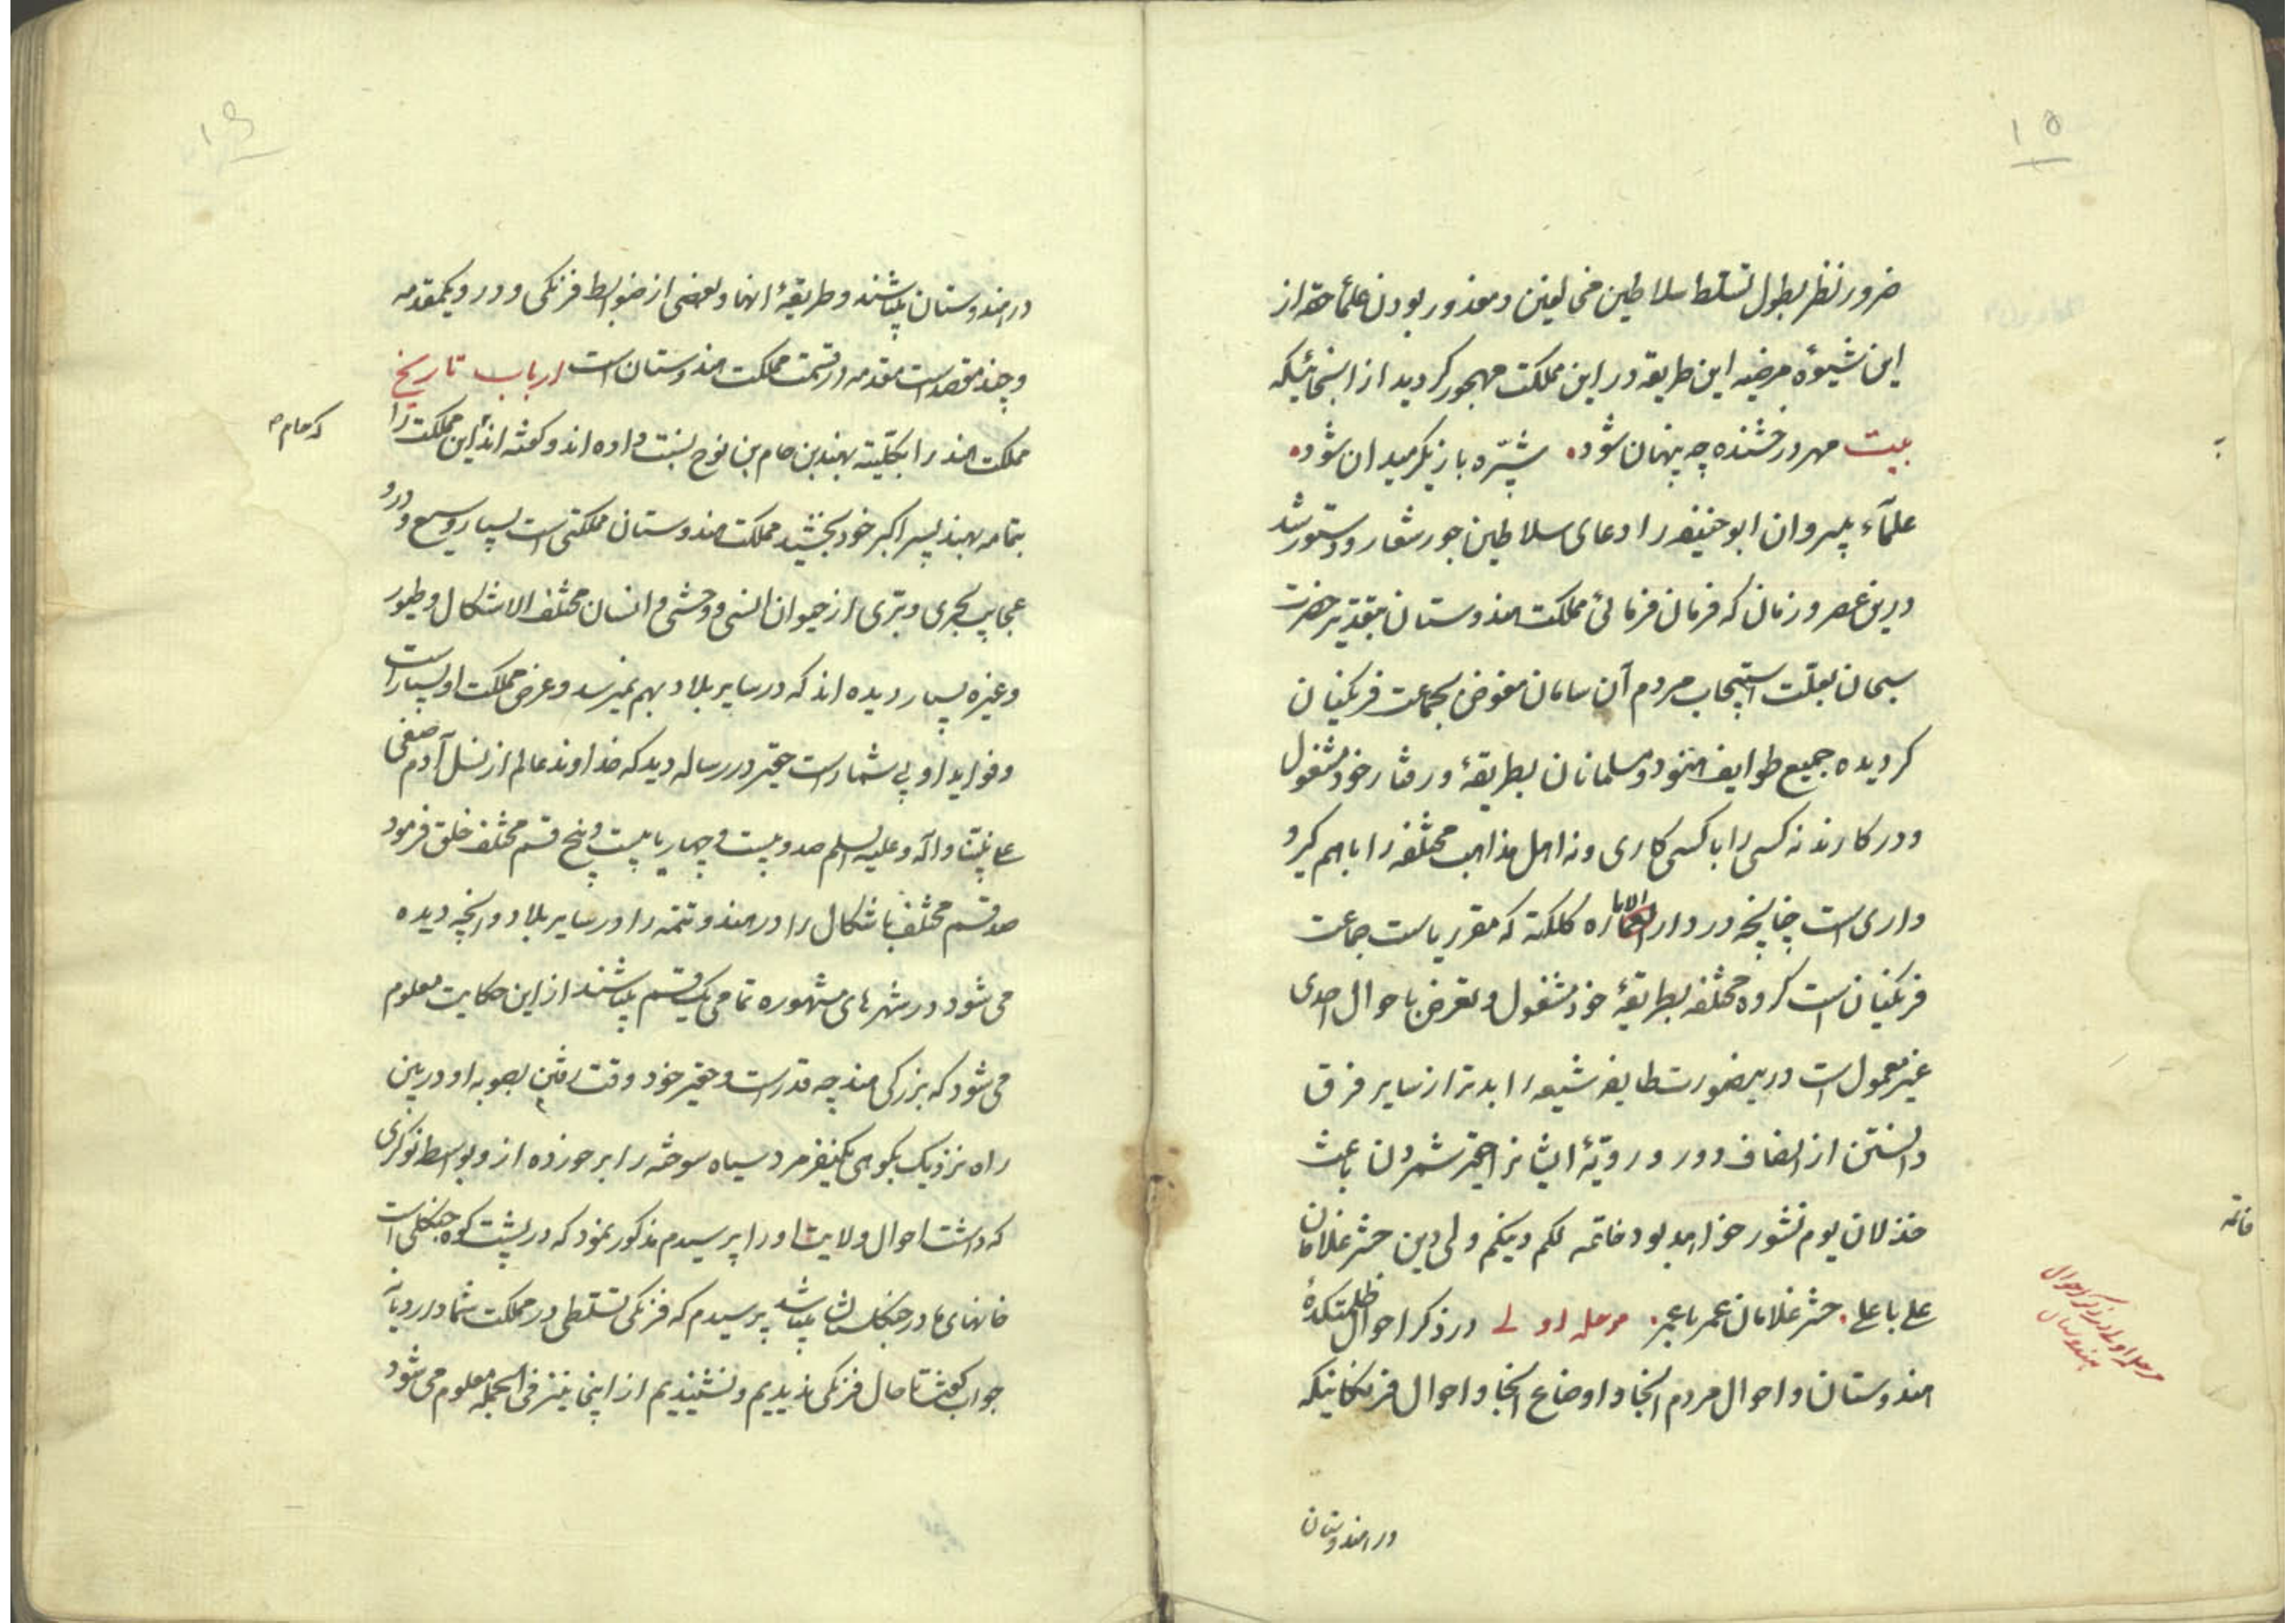 ۱۵
ضرور نظر بطول تسلط سلاطین مخالفین و معذور بودن علماء حقه از
این شیوهٔ مرضیه این طریقه در این مملکت مهجور کردید از انجائیکه
بیت مهر درخشنده چه پنهان شود شبپره بازیکر میدان شود
علماء پیروان ابوحنیفه را دعای سلاطین جور شعار و دستور شد
درین عصر و زمان که فرمان فرمائی مملکت هندوستان بتقدیر حضرت
سبحان بعلت استیجاب مردم آن سامان مفوض بجماعت فرنکیان
کردیده جمیع طوایف هنود و مسلمانان بطریقهٔ و رفتار خود مشغول
و در کارند نه کسی را با کسی کاری و نه اهل مذاهب مختلفه را باهم کیر و
داری است چنانچه در دار الاماره کلکته که مقر ریاست جماعت
فرنکیان است کروه مختلفه بطریقهٔ خود مشغول و تعرض باحوال احدی
غیر معمول است درینصورت طایفه شیعه را بدتر از سایر فرق
دانستن از انصاف دور و رویّهٔ ایشانرا حقیر شمردن باعث
خذلان یوم نشور خواهد بود خاتمه لکم دینکم ولی دین حشر غلامان
علی با علی حشر غلامان عمر با عمر مرحله اولی در ذکر احوال ظلمتکدهٔ
هندوستان و احوال مردم انجا و اوضاع انجا و احوال فرنکانیکه
در هندوستان
خاتمه
مرحله اولی در ذکر احوال
هندوستان
۱۶
در هندوستان میباشند و طریقهٔ انها و بعضی از ضوابط فرنکی و در ویکمقدمه
و چند مقصد است مقدمه در قسمت مملکت هندوستان است ارباب تاریخ
مملکت هند را بکلیته بهند بن حام بن نوح نسبت داده اند و کفته اند این مملکت را
که حام
بتمامه بهند پسر اکبر خود بخشید مملکت هندوستان مملکتی است بسیار وسیع و درو
عجایب بحری و بری از حیوان انسی و وحشی و انسان مختلف الاشکال و طیور
و غیره بسیار دیده اند که در سایر بلاد بهم نمیرسد و عرض مملکت او بسیار است
و فواید او بی شمار است حقیر در رساله دید که خداوند عالم از نسل آدم صفی
علی نبینا و اله و علیه السلم صد و بیست و چهار یا بیست و پنج قسم مختلف خلق فرمود
صد قسم مختلف باشکال را در هند و تتمه را در سایر بلاد و انچه دیده
می شود در شهرهای مشهوره تمامی یک قسم میباشند از این حکایت معلوم
می شود که بزرکی هند چه قدر است و حقیر خود وقت رفتن بصوبه او در بین
راه نزدیک بکوهی یکنفر مرد سیاه سوخته را برخورده از و بواسطه نوکری
که داشت احوال ولایت او را پرسیدم مذکور نمود که در پشت کوه جنکلی است
خانهای ما در جنکلستان میباشد پرسیدم که فرنکی تسلطی در مملکت شما دارد یا نه
جواب کفت تا حال فرنکی ندیدیم و نشنیدیم از اینجا نیز فی الجمله معلوم می شود